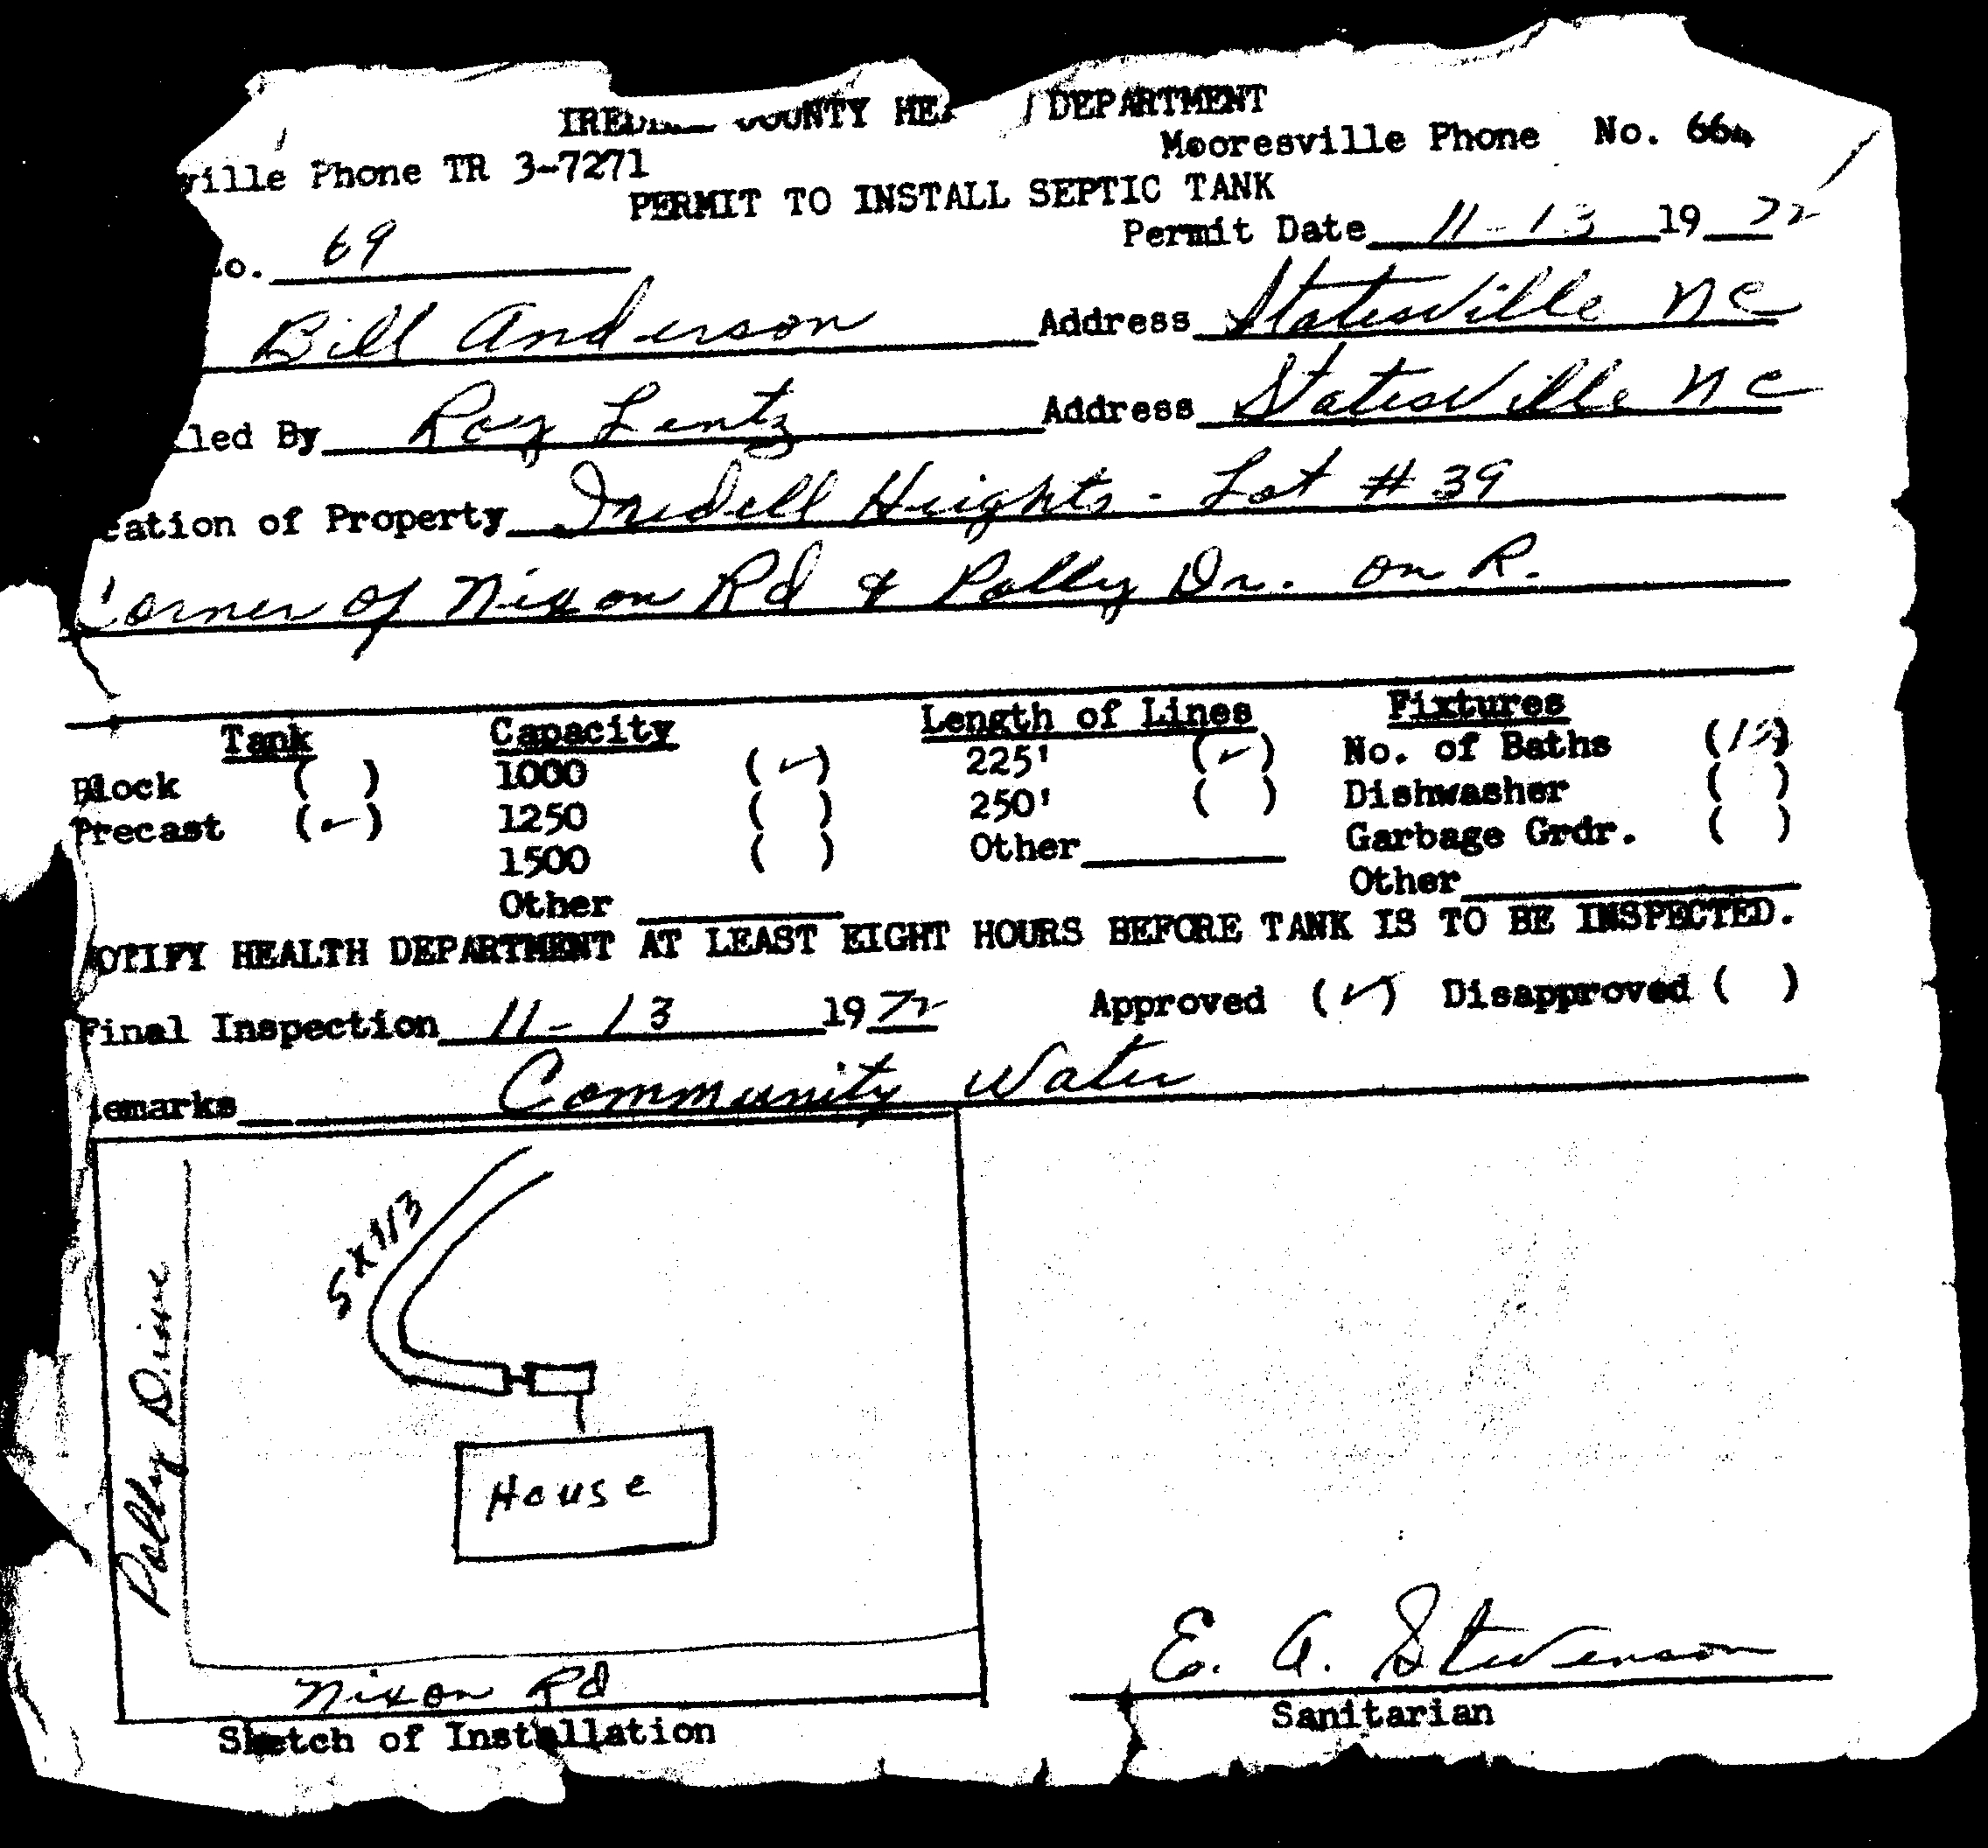 COUNTY DEPARTMENT
ville Phone TR 3-7271 Mooresville Phone No. 664
PERMIT TO INSTALL SEPTIC TANK
o. 69 Permit Date 11-13 1972
Bill Anderson Address Statesville NC
lled By Roy Lentz Address Statesville NC
cation of Property Iredell Heights - Lot # 39
Corner of Nixon Rd & Polly Dr. on R.
Tank Capacity Length of Lines Fixtures
Block ( ) 1000 (✓) 225' (✓) No. of Baths
Precast (✓) 1250 ( ) 250' ( ) Dishwasher ( )
1500 ( ) Other Garbage Grdr. ( )
Other Other
NOTIFY HEALTH DEPARTMENT AT LEAST EIGHT HOURS BEFORE TANK IS TO BE INSPECTED.
Final Inspection 11-13 1972 Approved (✓) Disapproved ( )
emarks Community Water
5 x 113
Polly Drive
House
Nixon Rd
Sketch of Installation
E. A. Stevenson
Sanitarian